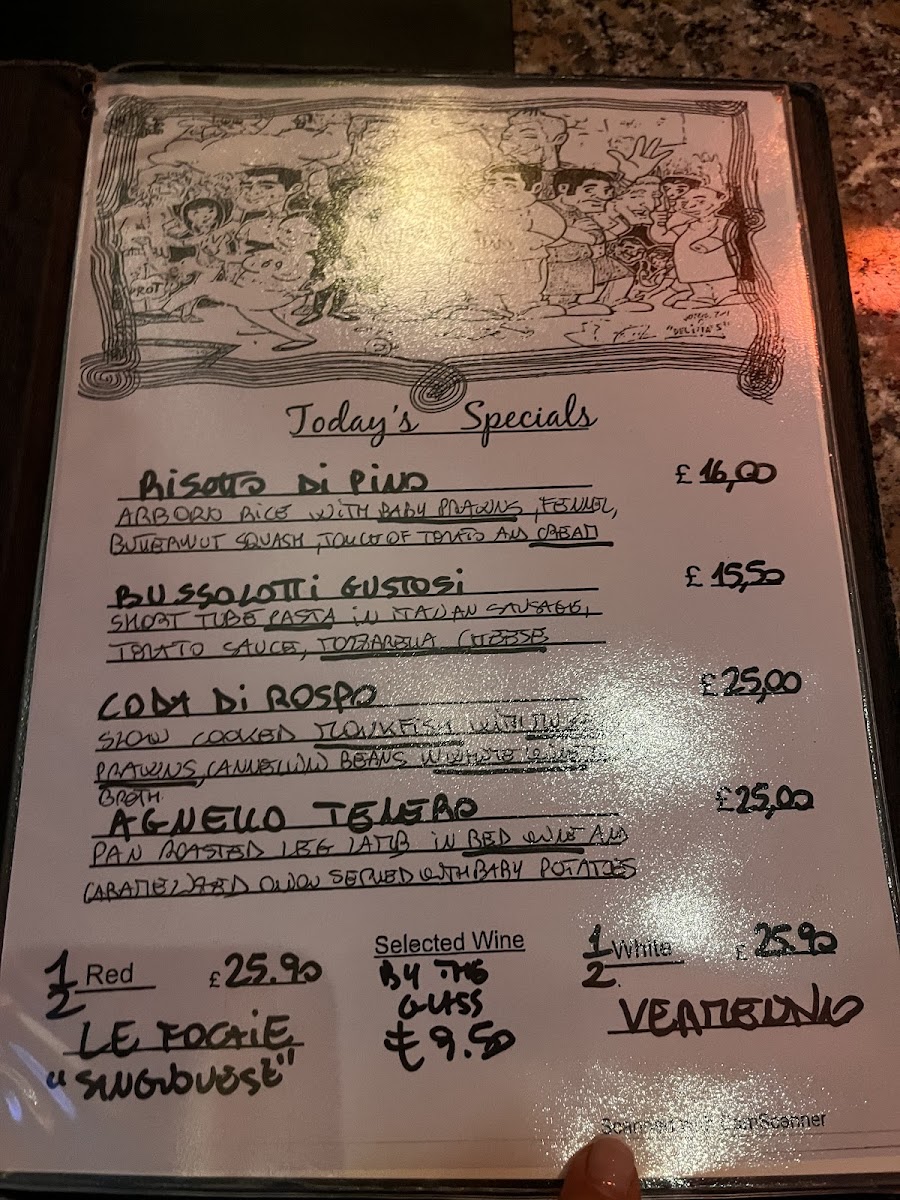 PROT
"DELINA'S"
Today's Specials
RISOTTO Di PiNO £ 16,00
ARBORIO RICE WITH BABY PRAWNS, FENNEL,
BUTTERNUT SQUASH, TOUCH OF TOMATO AND CREAM
BUSSOLOTTi GUSTOSi £ 15,50
SHORT TUBE PASTA iN ITALIAN SAUSAGE,
TOMATO SAUCE, MOZZARELLA CHEESE
CODA Di ROSPO £ 25,00
SLOW COOKED MONKFISH WITH
PRAWNS, CANNELLINI BEANS IN WHITE WINE
BROTH.
AGNELLO TENERO £ 25,00
PAN ROASTED LEG LAMB iN RED WINE AND
CARAMELIZED ONION SERVED WITH BABY POTATOES
Selected Wine
1/2 Red £ 25.90
BY THE
GLASS
£ 9.50
1/2 White £ 25.90
LE FOCAIE
"SANGIOVESE"
VERMENTINO
Scanned with CamScanner